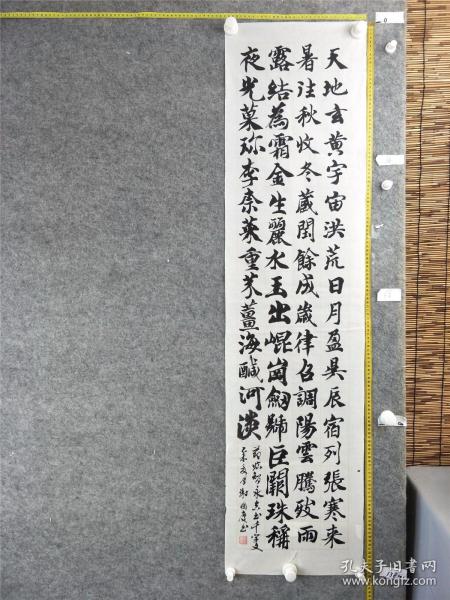 天地玄黄宇宙洪荒日月盈昃辰宿列張寒来
暑往秋收冬蔵閏餘成歳律召調陽雲騰致雨
露結為霜金生麗水玉出崐崗劔號巨闕珠稱
夜光菓珍李柰菜重芥薑海醎河淡
智永真书千字文
孔夫子旧书网
www.kongfz.com